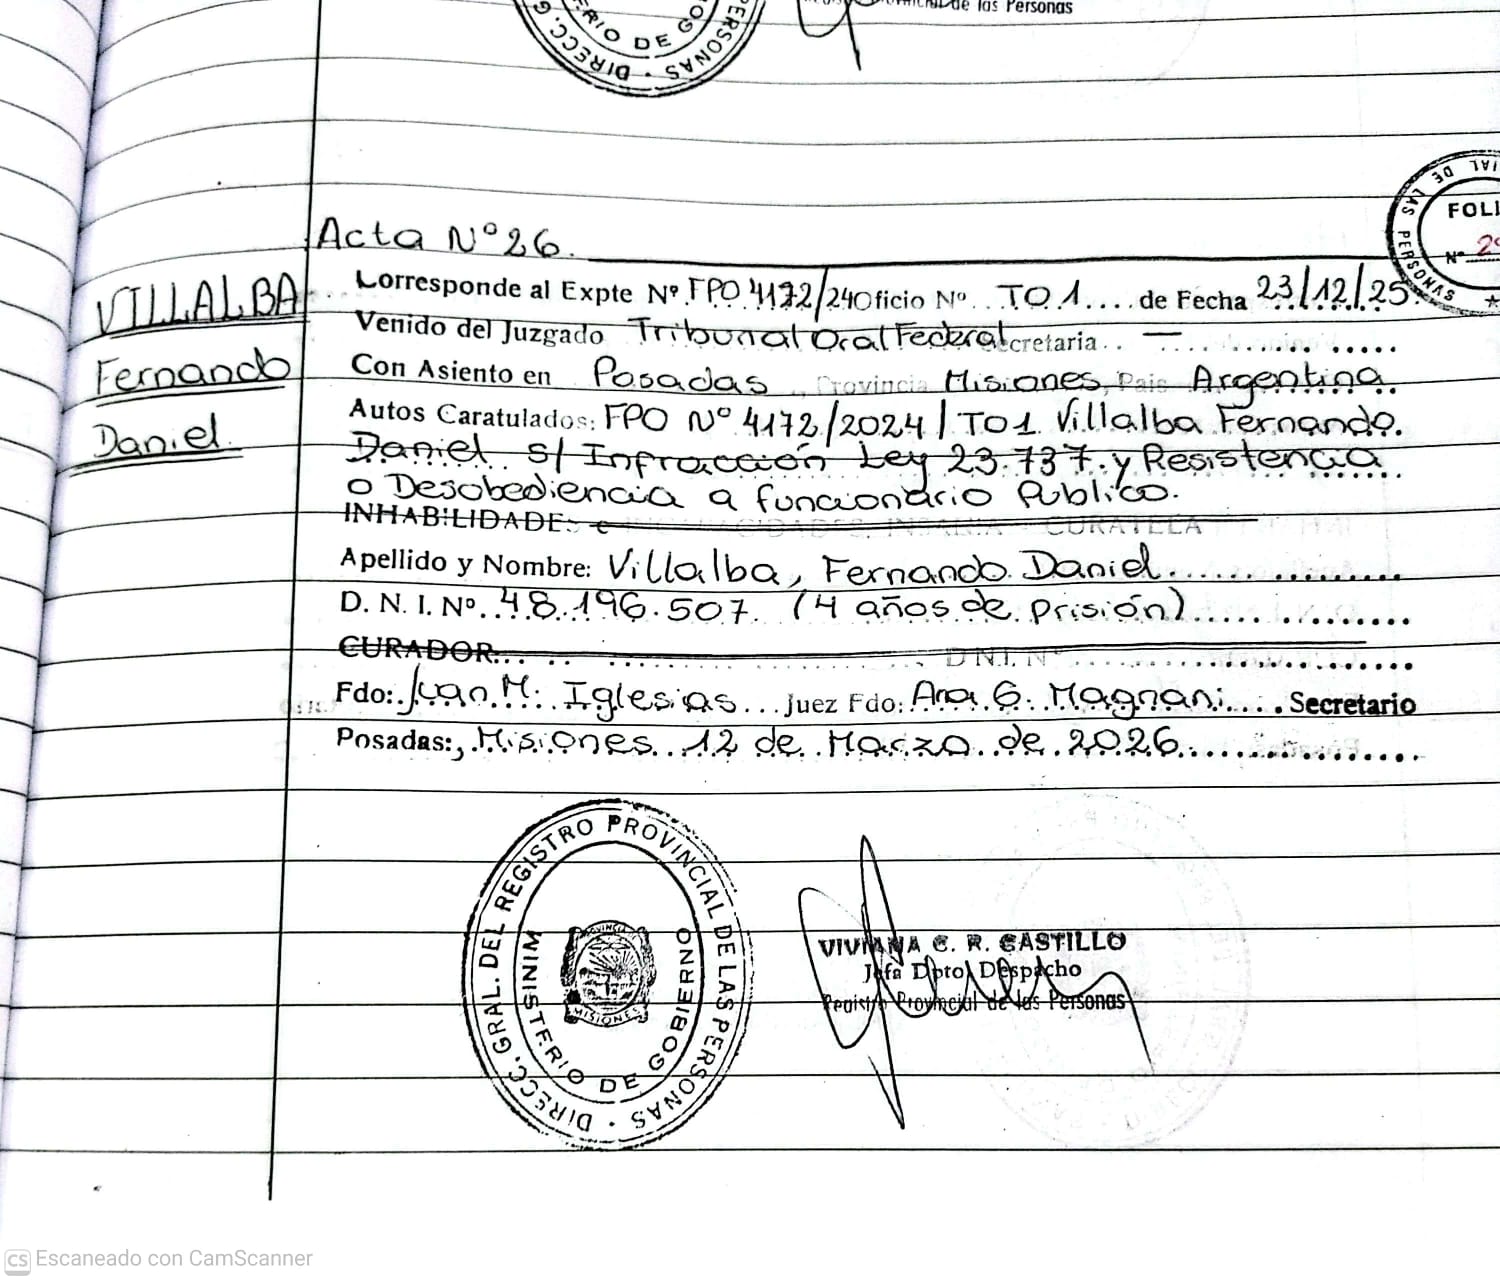 de las Personas
DIRECC. G
RIO DE GO
PERSONAS
Acta Nº 26.
VILLALBA
Fernando
Daniel
Corresponde al Expte Nº FPO 4172/24 Oficio Nº TO1.... de Fecha 23/12/25.
Venido del Juzgado Tribunal Oral Federal cretaria.. — ...........
Con Asiento en Posadas, Provincia Misiones, Pais Argentina.
Autos Caratulados: FPO Nº 4172/2024/TO1 Villalba Fernando.
Daniel s/ Infracción Ley 23.737. y Resistencia
o Desobediencia a funcionario Publico.
INHABILIDADE: INSANIA CURATELA
Apellido y Nombre: Villalba, Fernando Daniel..................
D. N. I. Nº 48.196.507. (4 años de prisión)..................
CURADOR.................. D.N.I. Nº..................
Fdo: Juan M. Iglesias...Juez Fdo: Ana G. Magnani.... Secretario
Posadas:, Misiones 12 de Marzo de 2026..................
DE LAS PERSONAS
IAL DE
FOLI
Nº 2
DIRECC. GRAL. DEL REGISTRO PROVINCIAL DE LAS PERSONAS
MINISTERIO DE GOBIERNO
PROVINCIA
MISIONES
VIVIANA C. R. CASTILLO
Jefa Dpto Despacho
Registro Provincial de las Personas
CS Escaneado con CamScanner